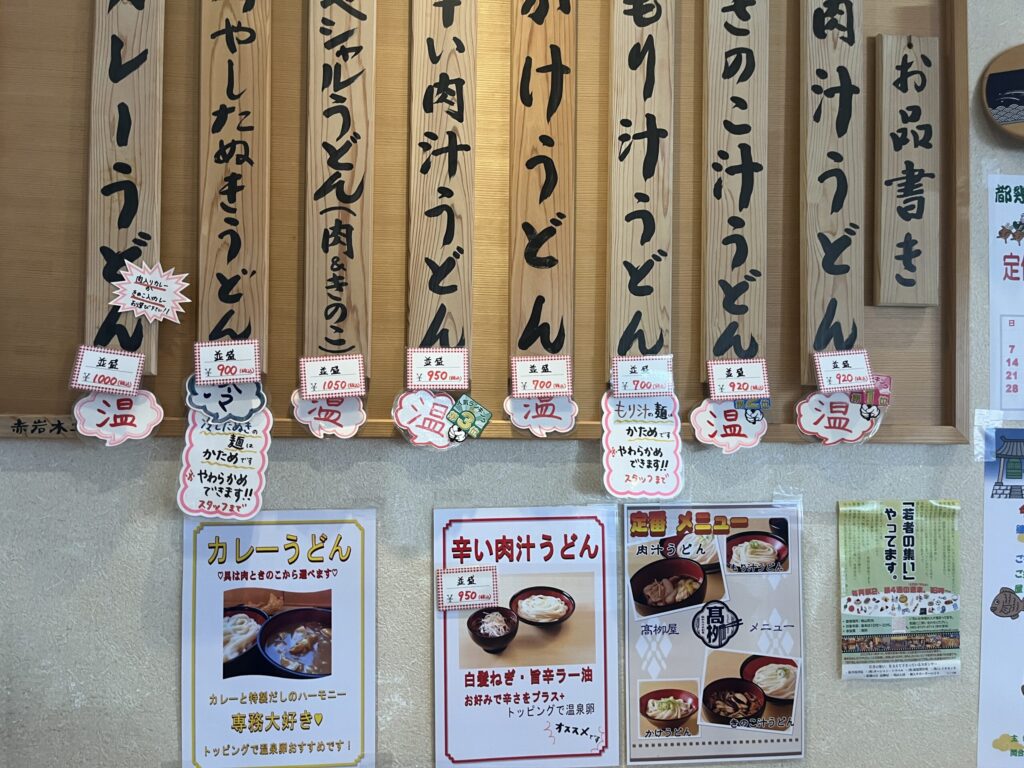 お品書き
肉汁うどん
並盛
¥920(税込)
温
きのこ汁うどん
並盛
¥920(税込)
温
もり汁うどん
並盛
¥700(税込)
もり汁の麺は
かためです
※やわらかめ
できます!!
スタッフまで
かけうどん
並盛
¥700(税込)
温
辛い肉汁うどん
並盛
¥950(税込)
温
シャルうどん(肉&きのこ)
並盛
¥1050(税込)
温
やしたぬきうどん
並盛
¥900(税込)
冷
冷したぬきの
麺は
かためです
※やわらかめ
できます!!
スタッフまで
カレーうどん
肉入りカレー
か
きのこ入りカレー
お選び下さい!!
並盛
¥1000(税込)
温
赤岩木
カレーうどん
♡具は肉ときのこから選べます♡
カレーと特製だしのハーモニー
専務大好き♥
トッピングで温泉卵おすすめです!
辛い肉汁うどん
並盛
¥950(税込)
白髪ねぎ・旨辛ラー油
お好みで辛さをプラス+
トッピングで温泉卵
オススメです
定番 メニュー
肉汁うどん
もり汁うどん
髙柳屋
髙柳
メニュー
かけうどん
きのこ汁うどん
「若者の集い」
やってます。
都幾
定休
日
7
14
21
28